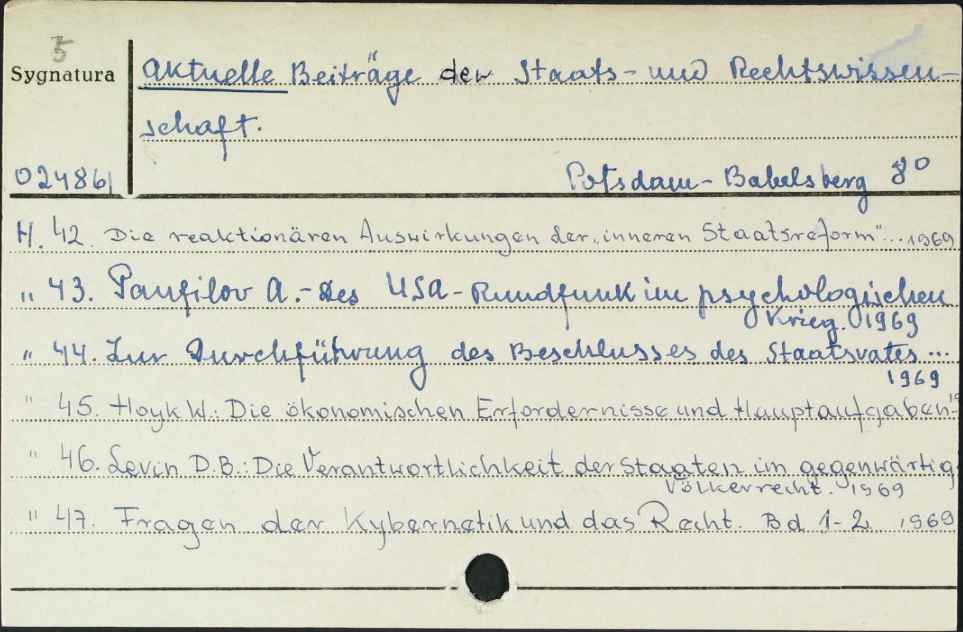 5
Sygnatura
Aktuelle Beiträge der Staats- und Rechtswissen-
schaft.
02486/
Potsdam-Babelsberg 8°
H. 42. Die reaktionären Auswirkungen der „inneren Staatsreform"... 1969
" 43. Panfilov A.- Des USA-Rundfunk im psychologischen
Krieg. 1969
" 44. Zur Durchführung des Beschlusses des Staatsrates...
1969
" 45. Hoyk W.: Die ökonomischen Erfordernisse und Hauptaufgaben-
" 46. Levin D.B.: Die Verantwortlichkeit der Staaten im gegenwärtig
Völkerrecht. 1969
" 47. Fragen der Kybernetik und das Recht. Bd 1-2 1969